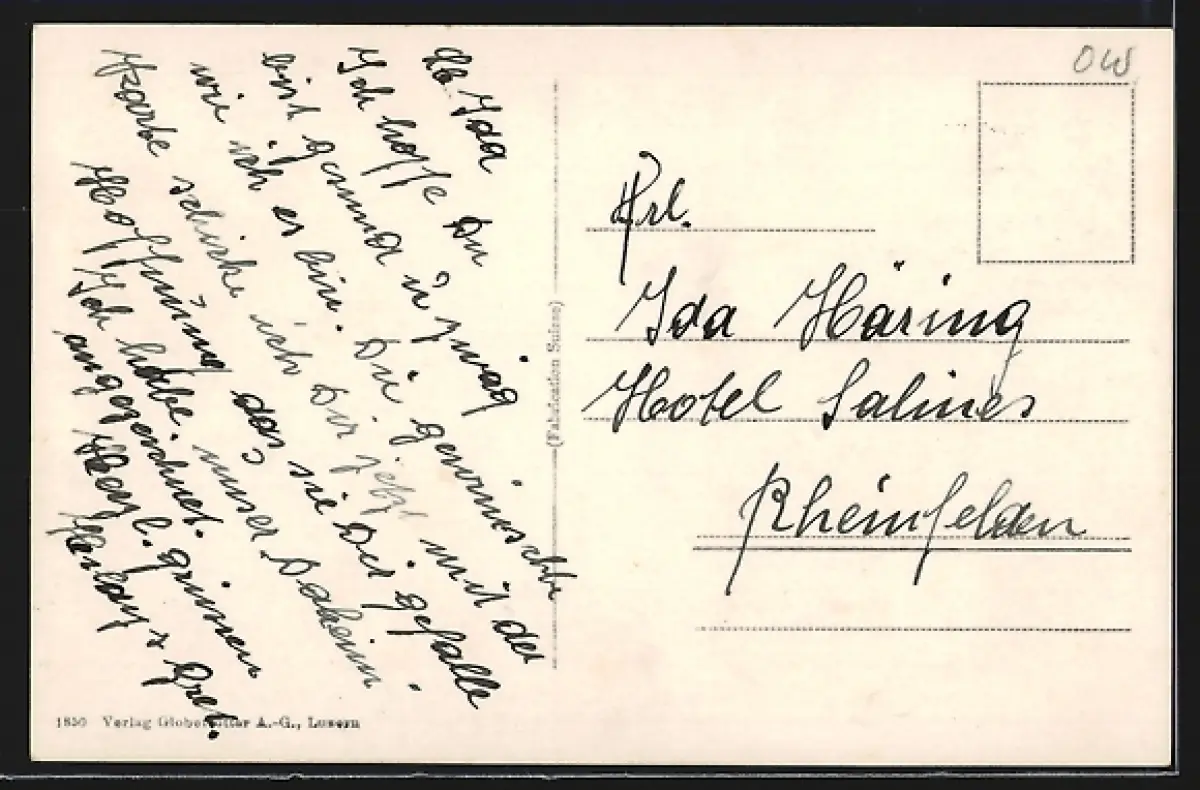 Lb. Ida
Ich hoffe Du
bist gesund u. zwäg
wie ich es bin. Die gewünschte
Karte schicke ich Dir jetzt mit der
Hoffnung das sie Dir gefalle
Ich habe unser Daheim
angezeichnet.
Herzl. grüssen
& Gret.
OW
Frl.
Ida Häring
Hotel Salines
Rheinfelden
(Fabrication Suisse)
1850 Verlag Globetrotter A.-G., Luzern